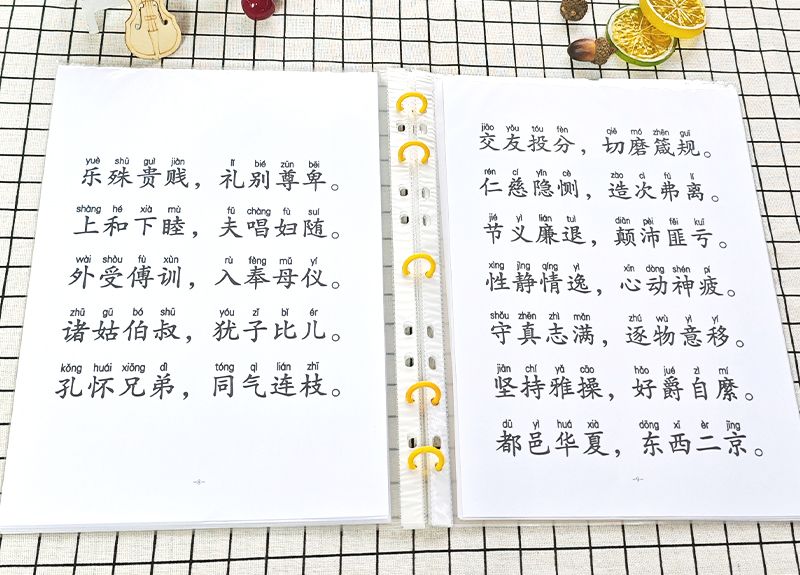 yuè shū guì jiàn lǐ bié zūn bēi
乐殊贵贱，礼别尊卑。
shàng hé xià mù fū chàng fù suí
上和下睦，夫唱妇随。
wài shòu fù xùn rù fèng mǔ yí
外受傅训，入奉母仪。
zhū gū bó shū yóu zǐ bǐ ér
诸姑伯叔，犹子比儿。
kǒng huái xiōng dì tóng qì lián zhī
孔怀兄弟，同气连枝。
-8-
jiāo yǒu tóu fèn qiē mó zhēn guī
交友投分，切磨箴规。
rén cí yǐn cè zào cì fú lí
仁慈隐恻，造次弗离。
jié yì lián tuì diān pèi fěi kuī
节义廉退，颠沛匪亏。
xìng jìng qíng yì xīn dòng shén pí
性静情逸，心动神疲。
shǒu zhēn zhì mǎn zhú wù yì yí
守真志满，逐物意移。
jiān chí yǎ cāo hǎo jué zì mí
坚持雅操，好爵自縻。
dū yì huá xià dōng xī èr jīng
都邑华夏，东西二京。
-9-